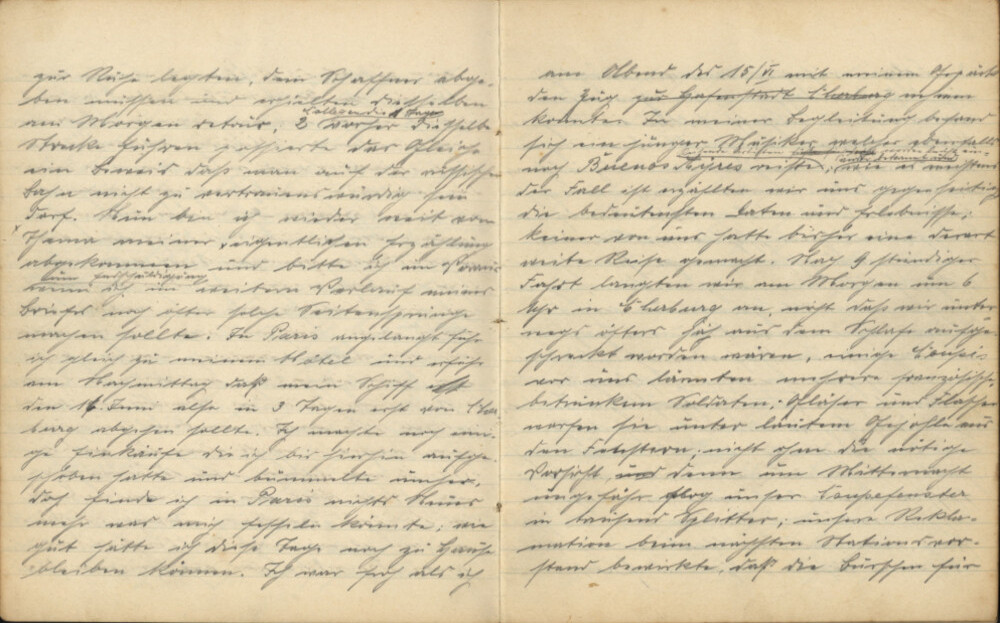 zur Ruhe legten, dem Schaffner abge-
ben mussten und erhielten dieselben
am Morgen retour. 2 Tage vorher dieselbe
Strecke fuhren passierte das Gleiche
ein Beweis daß man auf der
Bahn nicht zu vertrauenswürdig sein
darf. Nun bin ich wieder weit vom
Thema meiner eigentlichen Erzählung
abgekommen und bitte ich im Voraus
um Entschuldigung
wenn ich im weitern Verlauf meines
Briefes noch öfter solche Seitensprünge
machen sollte. In Paris angelangt fuhr
ich gleich zu meinem Hôtel und erfuhr
am Nachmittag daß mein Schiff erst
den 16 Juni also in 3 Tagen erst von Cher
burg abgehen sollte. Ich machte noch eini-
ge Einkäufe die ich bis hierhin aufge
schoben hatte und bummelte umher.
Doch finde ich in Paris nichts Neues
mehr was mich fesseln könnte; wie
gut hätte ich diese Tage noch zu Hause
bleiben können. Ich war froh als ich
am Abend des 15/VI mit meinem Gepäck
den Zug zur Hafenstadt Cherburg nehmen
konnte. In meiner Begleitung befand
sich ein junger Musiker welcher ebenfalls
nach Buenos Ayres reiste, wie es meistens
der Fall ist erzählten wir uns gegenseitig
die bedeutensten Daten und Erlebnisse;
keiner von uns hatte bisher eine derart
weite Reise gemacht. Nach 9 stündiger
Fahrt langten wir am Morgen um 6
Uhr in Cherburg an, nicht daß wir unter
wegs öfters jäh aus dem Schlafe aufge
schreckt worden wären, einige Coupés
vor uns lärmten mehrere französische
betrunkene Soldaten; Gläser und Flaschen
warfen sie unter lautem Gejohle aus
den Fenstern; nicht ohne die nötige
Vorsicht, denn um Mitternacht
ungefähr flog unser Coupefenster
in tausend Splitter; unsere Rekla-
mation beim nächsten Stationsvor-
stand bewirkte, daß die Burschen für